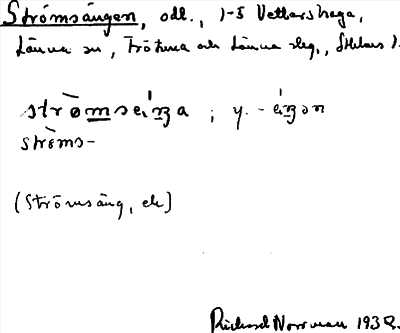 Strömsängen, odl., 1-5 Vettershaga,
Länna sn, Frötuna och Länna slg., Sthlms l.
strömseiŋa ; y. - eiŋon
ströms-
(Strömsäng, ek)
Rickard Norrman 1932.